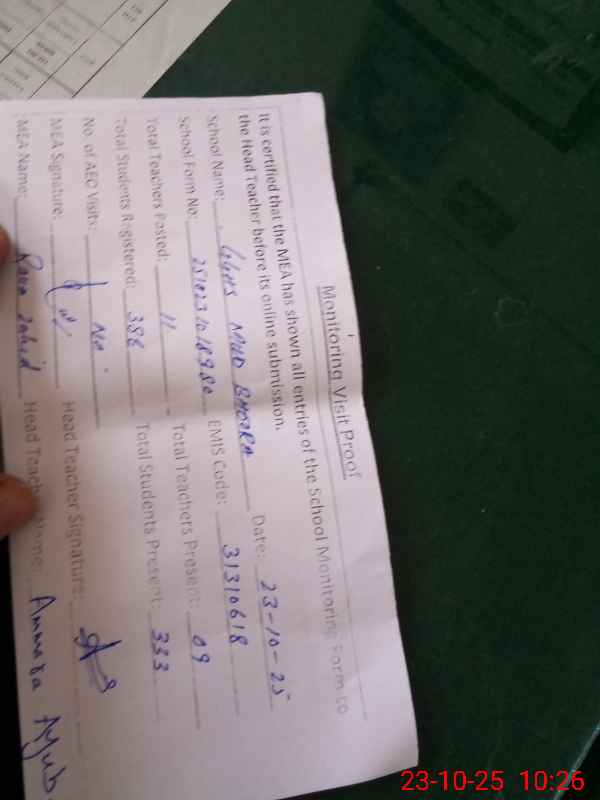 Monitoring Visit Proof
It is certified that the MEA has shown all entries of the School Monitoring Form to
the Head Teacher before its online submission.
Date: 23-10-25
School Name: BHOORA
EMIS Code: 31310618
School Form No:
Total Teachers Posted: 11 Total Teachers Present: 09
Total Students Registered: 386 Total Students Present: 333
No. of AEO Visits:
MEA Signature: Head Teacher Signature:
MEA Name: Rana Zahid Head Teacher Name: Ammara Ayub
23-10-25 10:26